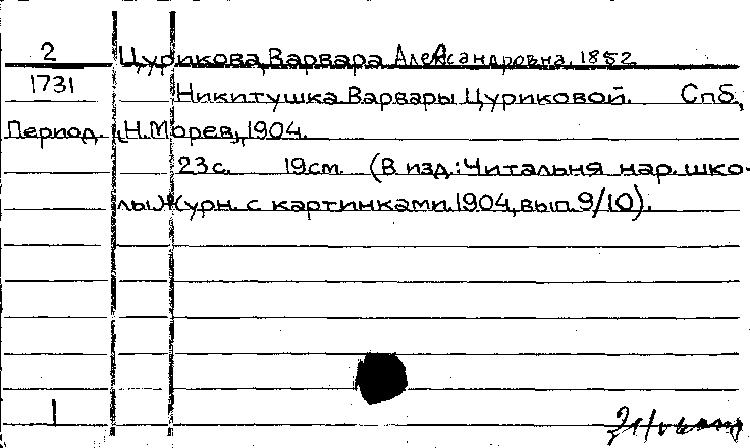 2 Цурикова, Варвара Александровна, 1852
1731 Никитушка Варвары Цуриковой. Спб,
Период. „Н.Морев„, 1904.
23 с. 19 см. (В изд.: Читальня нар. шко-
лы Журн. с картинками. 1904, вып. 9/10).
1